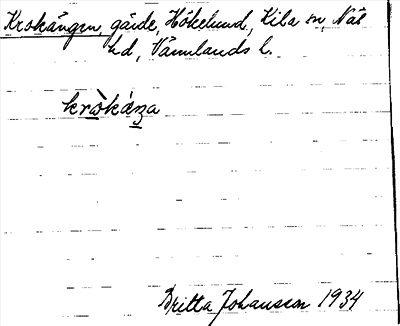 Krokängen, gärde, Hökelund, Kila sn, Näs
hd, Värmlands l.
kròkáŋa
Britta Johansson 1934